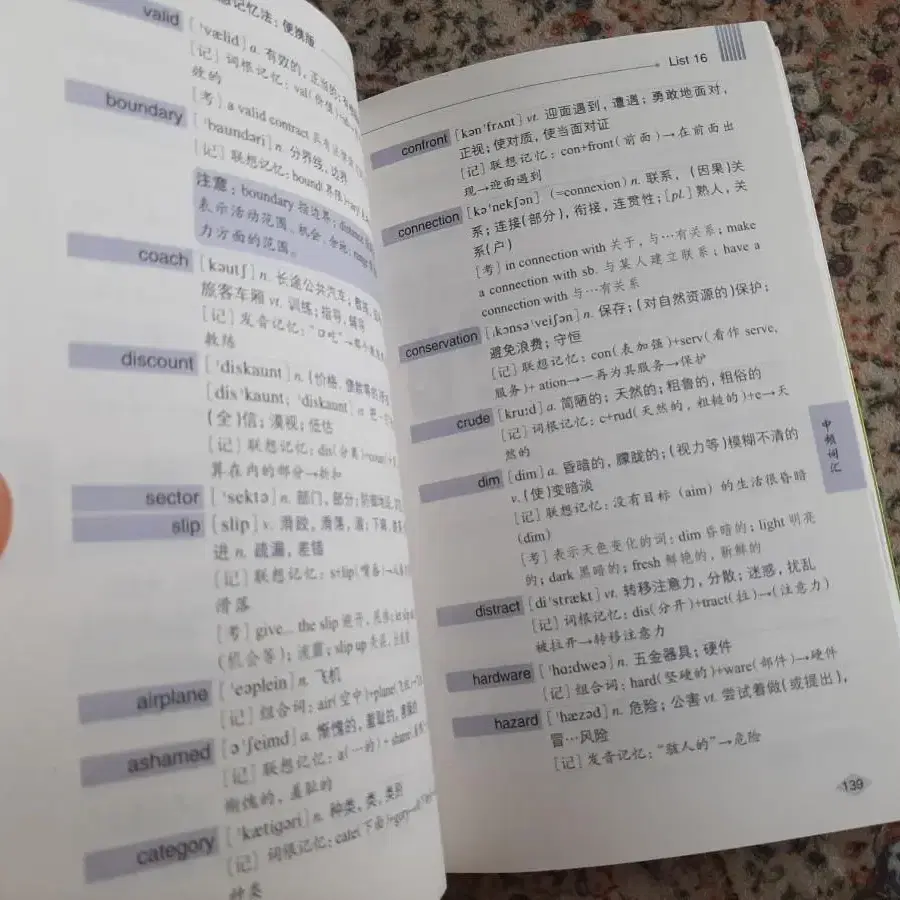 记忆法：便携版
valid
['vælid] a. 有效的，正当的；
[记] 词根记忆：val(价值)
效的
[考] a valid contract 具有法律
boundary
['baundəri] n. 分界线，边界
[记] 联想记忆：bound(界限)
注意：boundary 指边界；distance
表示活动范围、机会、余地；range
力方面的范围。
coach
[kəutʃ] n. 长途公共汽车；教练，
旅客车厢 vt. 训练；指导，辅导
[记] 发音记忆：
教练
discount
['diskaunt] n. (价格、债款等的)折扣
[dis'kaunt; 'diskaunt]
(全)信；漠视；低估
[记] 联想记忆：dis(分离)+count
算在内的部分→折扣
sector
['sektə] n. 部门，部分；防御地段，
slip
[slip] v. 滑跤，滑落，溜；下降，
进 n. 疏漏，差错
[记] 联想记忆：s+lip(嘴唇)
滑落
[考] give... the slip 避开，甩掉；let slip
(机会等)；泄露；slip up 失误，出差错
airplane
['eəplein] n. 飞机
[记] 组合词：air(空中)+plane
ashamed
[ə'ʃeimd] a. 惭愧的，羞耻的，
[记] 联想记忆：a(…的)+shame
愧的，羞耻的
category
['kætigəri] n. 种类，类，类别
[记] 词根记忆：cate(下面)+gory
种类
List 16
confront
[kən'frʌnt] vt. 迎面遇到，遭遇；勇敢地面对，
正视；使对质，使当面对证
[记] 联想记忆：con+front(前面)→在前面出
现→迎面遇到
connection
[kə'nekʃən] (=connexion) n. 联系，(因果)关
系；连接(部分)，衔接，连贯性；[pl.] 熟人，关
系(户)
[考] in connection with 关于，与…有关系；make
a connection with sb. 与某人建立联系；have a
connection with 与…有关系
conservation
[ˌkɔnsə'veiʃən] n. 保存；(对自然资源的)保护；
避免浪费；守恒
[记] 联想记忆：con(表加强)+serv(看作 serve，
服务)+ation→一再为其服务→保护
crude
[kru:d] a. 简陋的；天然的；粗鲁的，粗俗的
[记] 词根记忆：c+rud(天然的，粗糙的)+e→天
然的
dim
[dim] a. 昏暗的，朦胧的；(视力等)模糊不清的
v. (使)变暗淡
[记] 联想记忆：没有目标 (aim) 的生活很昏暗
(dim)
[考] 表示天色变化的词：dim 昏暗的；light 明亮
的；dark 黑暗的；fresh 鲜艳的，新鲜的
distract
[di'strækt] vt. 转移注意力，分散；迷惑，扰乱
[记] 词根记忆：dis(分开)+tract(拉)→(注意力)
被拉开→转移注意力
hardware
['hɑ:dweə] n. 五金器具；硬件
[记] 组合词：hard(坚硬的)+ware(部件)→硬件
hazard
['hæzəd] n. 危险；公害 vt. 尝试着做(或提出)，
冒…风险
[记] 发音记忆：“骇人的”→危险
中频词汇
139